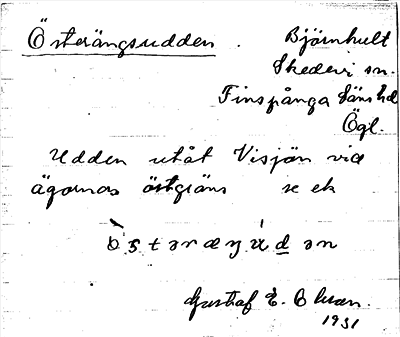 Österängsudden. Björnhult
Skedevi sn.
Finspånga läns hd
Ögl.
Udden utåt Visjön vid
ägornas östgräns se ek
Gustaf E. Olson.
1931